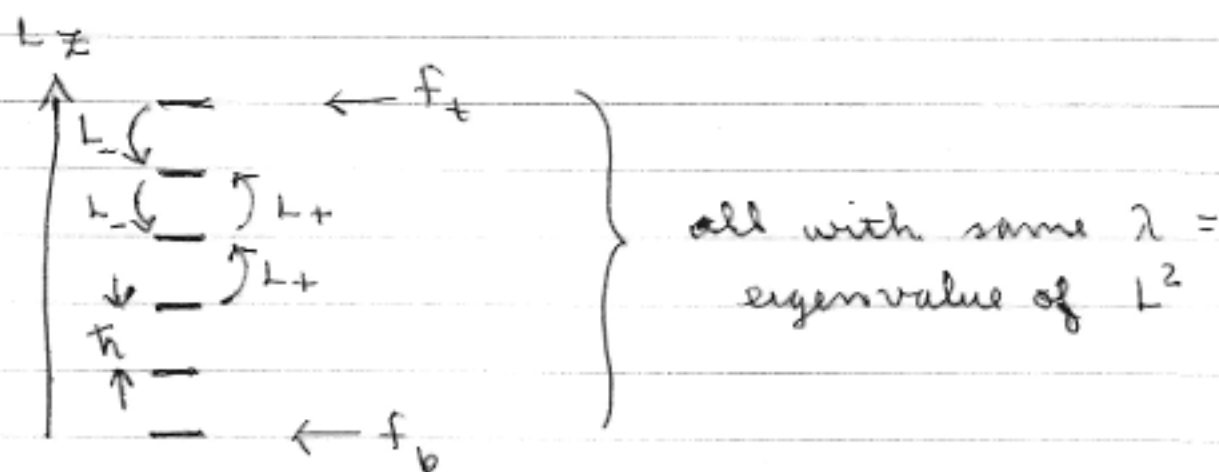 L z
← f_t
L_-
L_-
L_+
L_+
ħ
all with same λ =
eigenvalue of L²
← f_b